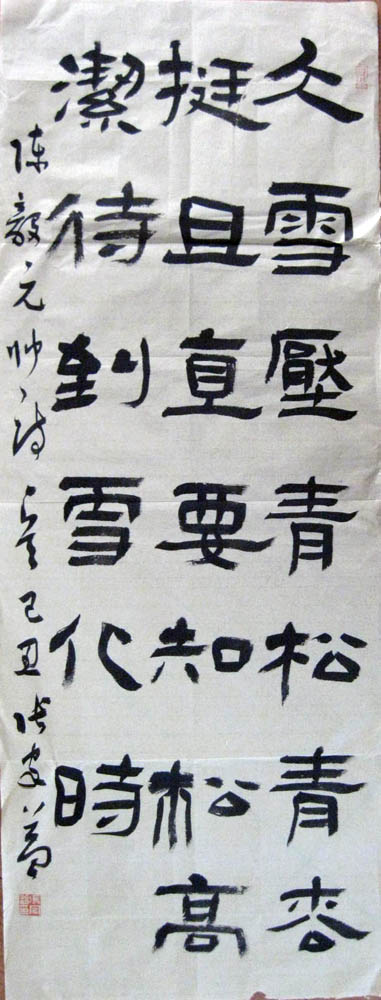 大雪壓青松青枩
挺且直要知松高
潔待到雪化時
陳毅元帅诗 己丑